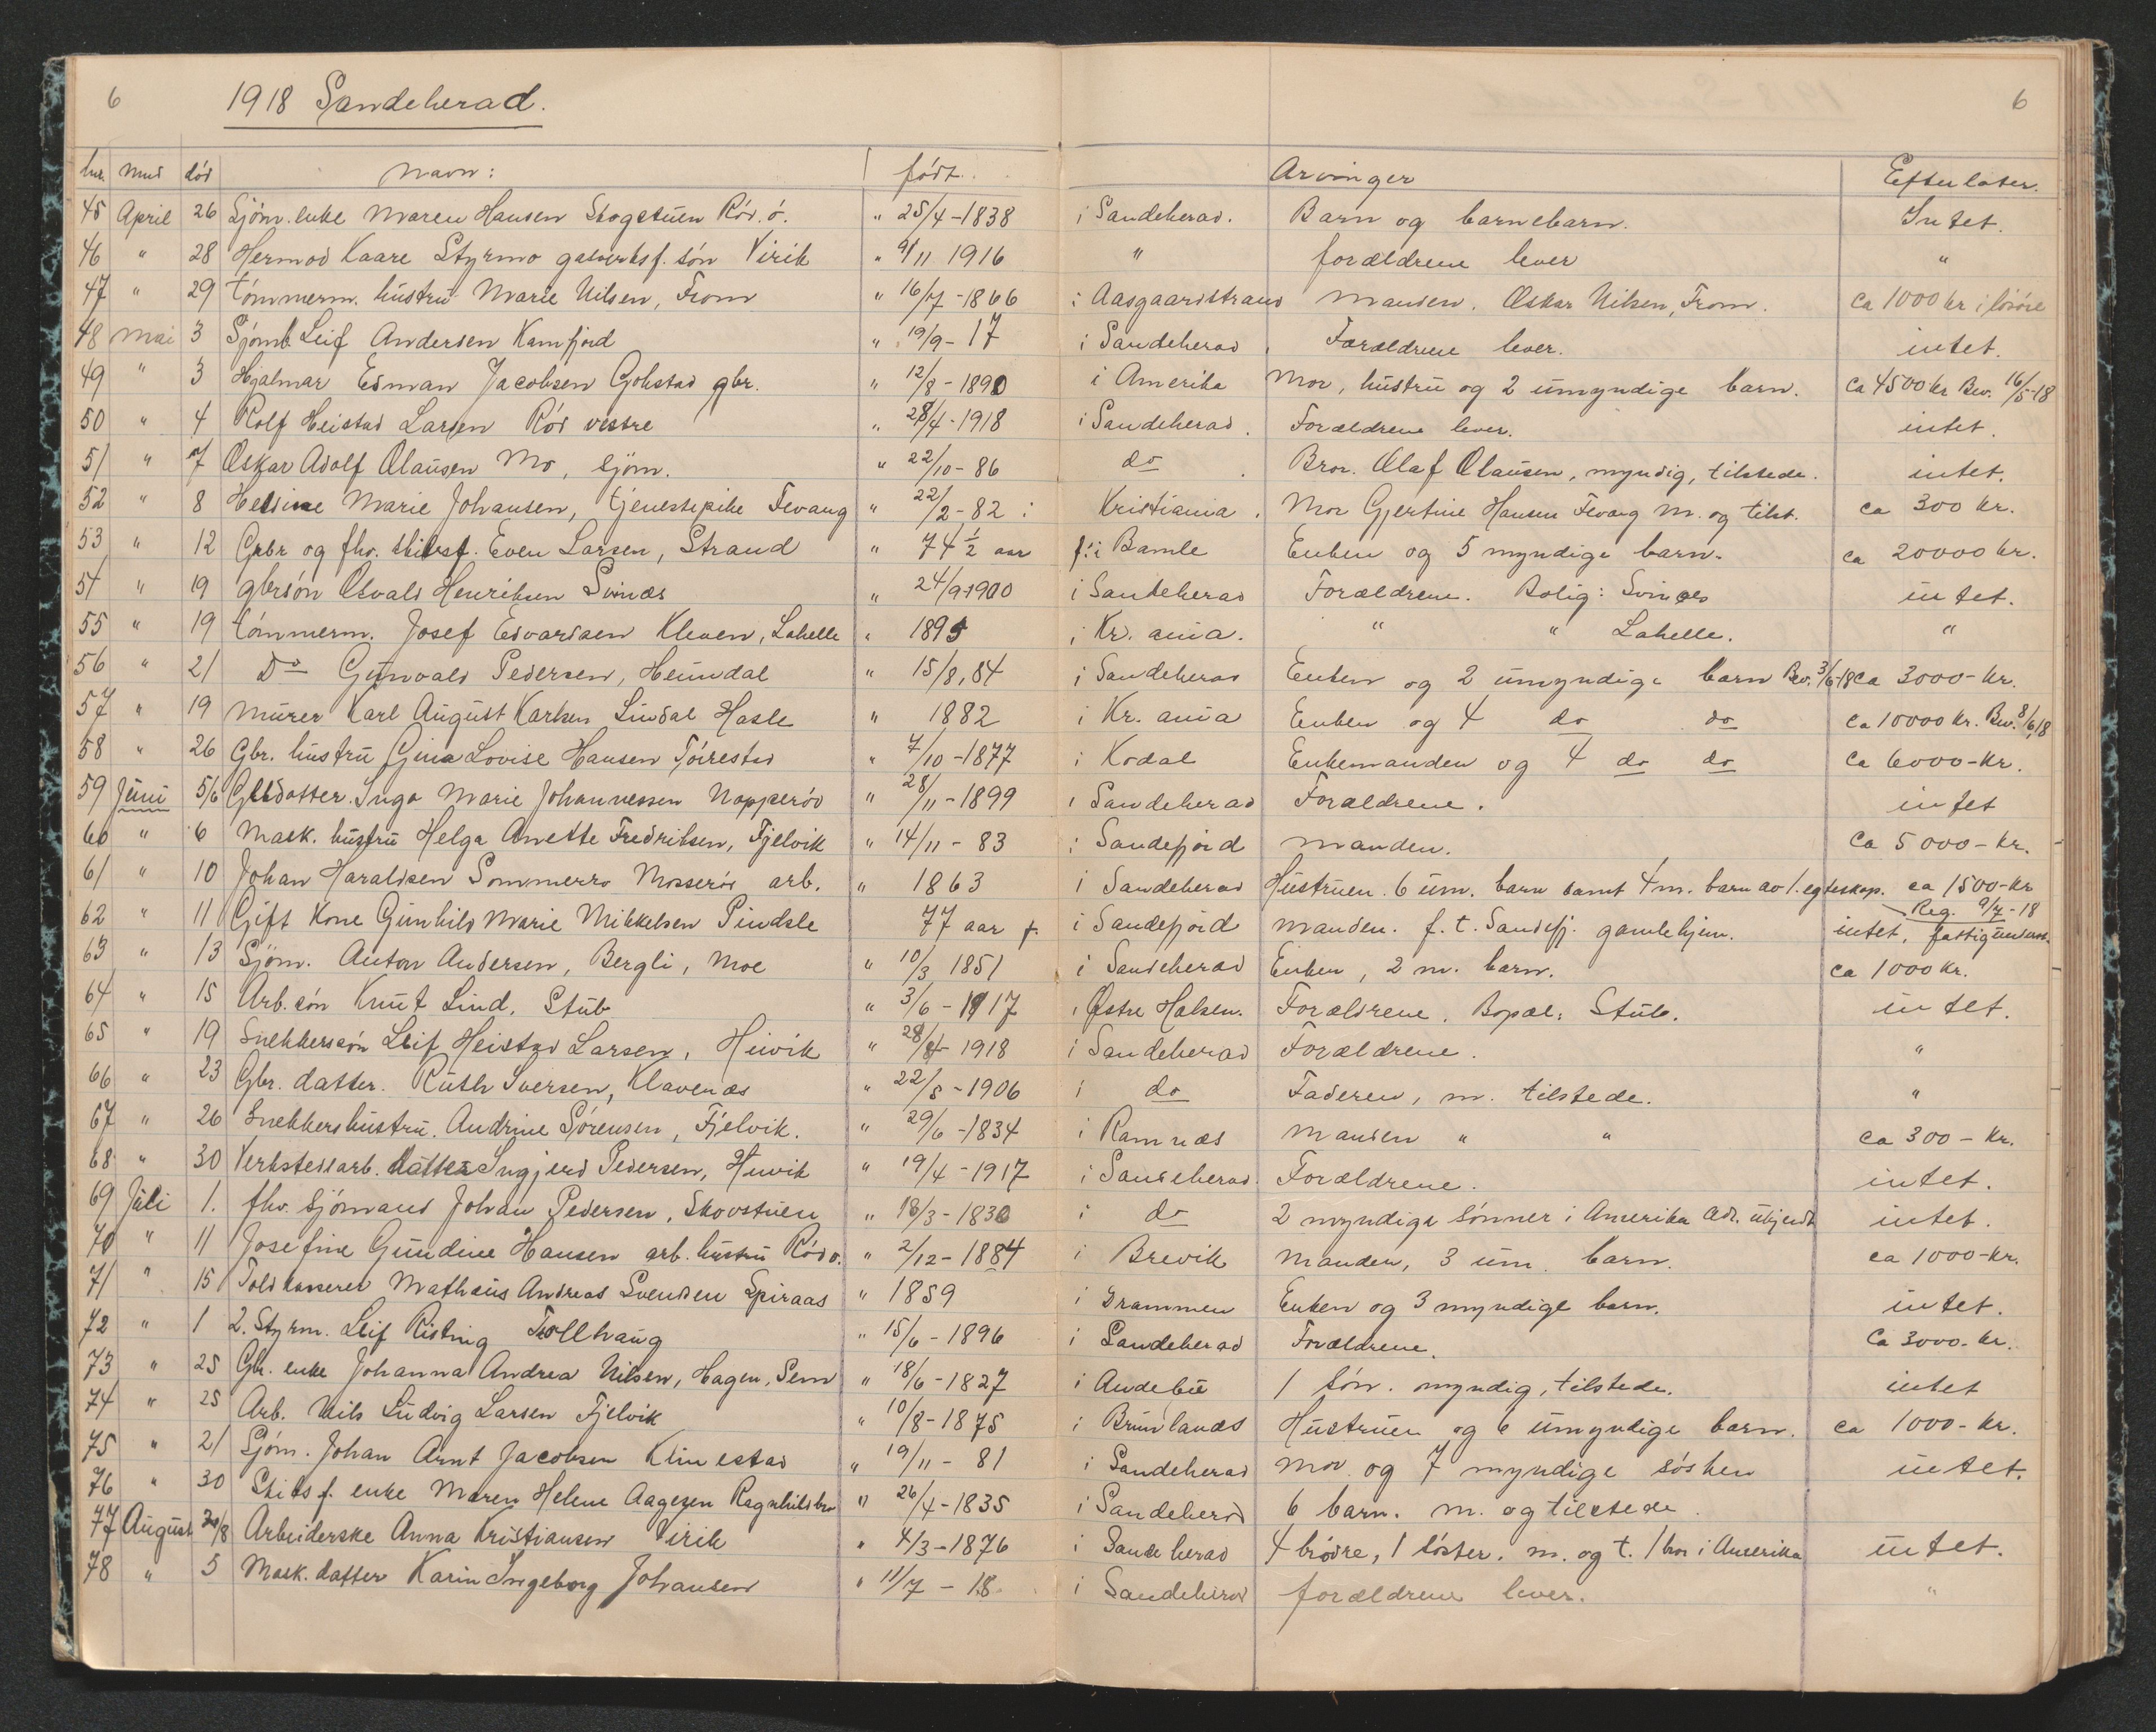 6 1918 Sandeherad. 6
lnr. Mnd død Navn: født. Arvinger Efterlater.
45 April 26 Sjøm. enke Maren Hansen Skogstuen Rød. ø. " 25/4-1838 i Sandeherad. Barn og barnebarn. Intet.
46 " 28 Hermod Kaare Styrmo gasverksf. søn Virik " 9/11 1916 " forældrene lever "
47 " 29 tømmerm. hustru Marie Nilsen, From " 16/7-1866 i Aasgaardstrand Manden. Oskar Nilsen, From. Ca 1000 kr i løsøre
48 Mai 3 Sjømd. Leif Andersen Kamfjord " 19/9-17 i Sandeherad. Forældrene lever. intet.
49 " 3 Hjalmar Edman Jacobsen Gokstad gbr. " 12/8-1890 i Amerika Mor, hustru og 2 umyndige barn. Ca 4500 kr Bev. 16/5-18
50 " 4 Rolf Heistad Larsen Rød vestre " 28/4-1918 i Sandeherad. Forældrene lever. intet.
51 " 7 Oskar Adolf Olausen Mo, sjøm. " 22/10-86 do. Bror. Olaf Olausen, myndig, tilstede. intet.
52 " 8 Helsine Marie Johansen, tjenestepike Fevang " 22/2-82 i Kristiania. Mor Gjertine Hansen Fevang m. og tilst. ca 300 kr.
53 " 12 Gbr og fhv. skibsf. Even Larsen, Strand " 74 1/2 aar f. i Bamle Enken og 5 myndige barn. ca 20000 kr.
54 " 19 gbrsøn Osvald Henriksen Svinæs " 24/9-1900 i Sandeherad Forældrene. Bolig: Svinæs intet.
55 " 19 tømmerm. Josef Edvardsen Kleven, Lahelle " 1895 i Kr. ania. " " Lahelle. "
56 " 21 Do Gunvald Pedersen, Heimdal " 15/8, 84 i Sandeherad Enken og 2 umyndige barn Bev. 3/6-18 Ca 3000-kr.
57 " 19 Murer Karl August Karlsen Lindal Hasle " 1882 i Kr. ania Enken og 4 do do ca 10000 kr. Bev. 8/6,18
58 " 26 Gbr. hustru Gina Lovise Hansen Tjørestad " 7/10-1877 i Kodal Enkemanden og 4 do do Ca 6000-kr.
59 Juni 5/6 Gbrdatter. Inga Marie Johannessen Napperød " 28/11-1899 i Sandeherad Forældrene. intet
60 " 6 Mask. hustru Helga Anette Fredriksen, Fjelvik " 14/11-83 i Sandefjord Manden. Ca 5000-kr.
61 " 10 Johan Haraldsen Sommerro Mosserød arb. " 1863 i Sandeherad Hustruen. 6 um. barn samt 4 m. barn av 1. egteskap. ca 1500-kr
Reg. 9/7-18
62 " 11 Gift Kone Gunhild Marie Mikkelsen Pindsle 77 aar f. i Sandefjord Manden. f. t. Sandefj. gamlehjem. intet, fattigunderst.
63 " 13 Sjøm. Anton Andersen, Bergli, Moe " 10/3 1851 i Sandeherad Enken, 2 m. barn. Ca 1000 kr.
64 " 15 Arb. søn Knut Lind. Stub " 3/6-1917 i Østre Halsen. Forældrene. Bopæl: Stub. intet.
65 " 19 Snekkersøn Leif Heistad Larsen, Huvik " 28/4 1918 i Sandeherad Forældrene. "
66 " 23 Gbr. datter. Ruth Iversen, Klavenæs " 22/8-1906 i do Faderen, m. tilstede. "
67 " 26 Snekkershustru. Andrine Sørensen, Fjelvik. " 29/6-1834 i Ramnæs Manden " " ca 300-kr.
68 " 30 Verkstedsarb. datter Ingjerd Pedersen, Huvik " 19/4-1917 i Sandeherad. Forældrene. intet.
69 Juli 1. fhv. sjømand Johan Pedersen, Skovstuen " 18/3-1830 i do 2 myndige sønner i Amerika adr. ubjendt intet.
70 " 11 Josefine Gundine Hansen arb. hustru Rød ø. " 2/12-1884 i Brevik Manden, 3 um. barn. ca 1000-kr.
71 " 15 Toldkasserer Mathæus Andreas Svendsen Spiraas " 1859 i Drammen Enken og 3 myndige barn. intet.
72 " 1 2. Styrm. Leif Risting Tollhaug " 15/6-1896 i Sandeherad Forældrene. Ca 3000-kr.
73 " 25 Gbr. enke Johanna Andrea Nilsen, Hagen, Sem " 18/6-1827 i Andebu 1 søn. myndig, tilstede. intet
74 " 25 Arb. Nils Ludvig Larsen Fjelvik " 10/8-1875 i Brunlanæs Hustruen og 6 umyndige barn. ca 1000-kr.
75 " 21 Sjøm. Johan Arnt Jacobsen Klinestad " 19/11-81 i Sandeherad Mor og 7 myndige søsken intet.
76 " 30 Skibsf. enke Maren Helene Aagesen Ragnhildsbro " 26/4-1835 i Sandeherad 6 barn. m. og tilstede.
77 August Arbeiderske Anna Kristiansen Virik " 4/3-1876 i Sandeherad 4 brødre, 1 søster. m. og t. 1 bror i Amerika intet.
78 " 5 Mask. datter Karin Ingeborg Johansen " 11/7-18 i Sandeherad forældrene lever. "